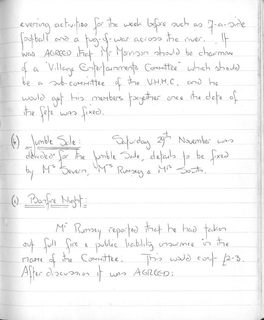 evening activities for the week before such as 7-a-side
football and a tug-of-war across the river. It
was AGREED that Mr Morrison should be chairman
of a "Village Entertainments Committee" which should
be a sub-committee of the V.H.M.C. and he
would get his members together once the date of
the fete was fixed.
Jumble Sale: Saturday 29th November was
decided for the Jumble Sale, details to be fixed
by Mrs Severn, Mrs Rumsey & Mrs South.
Bonfire Night:
Mr Rumsey reported that he had taken
out full fire & public liability insurance in the
name of the Committee. This would cost £2-3.
After discussion it was AGREED: